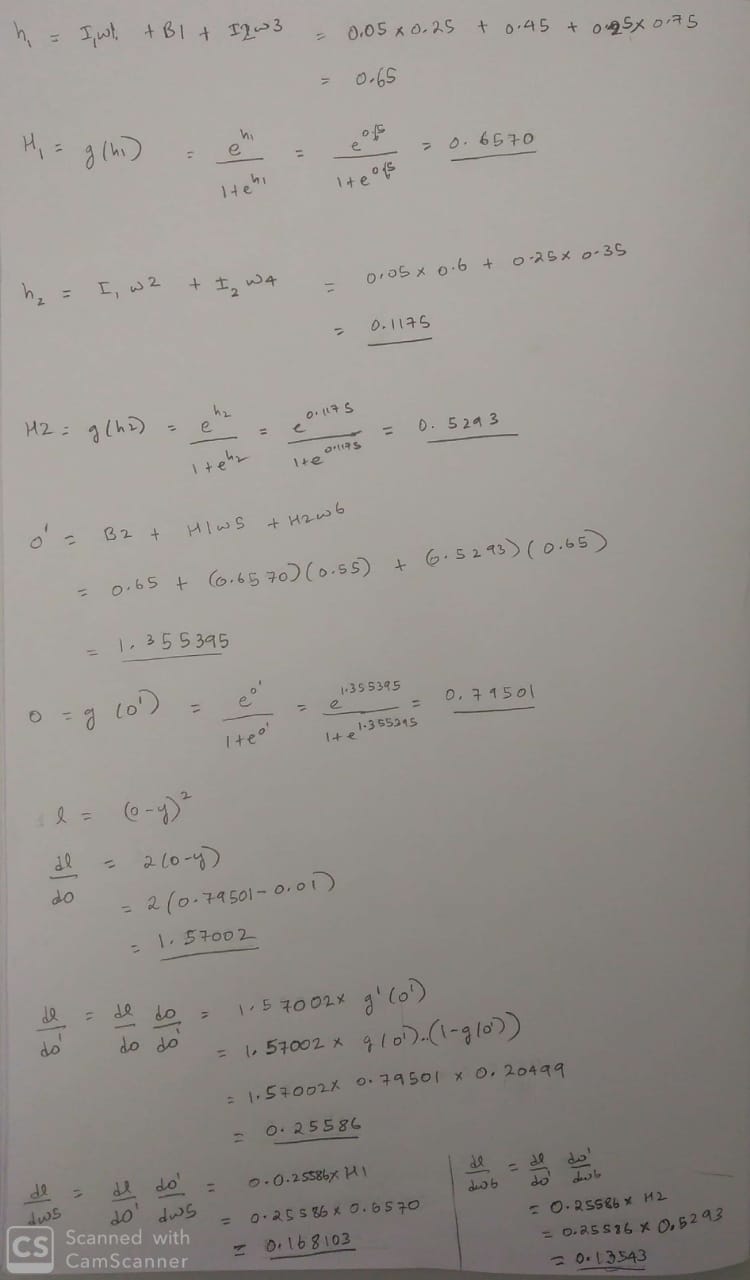 h₁ = I₁w1 + B1 + I2w3 = 0.05 x 0.25 + 0.45 + 0.25 x 0.75
= 0.65
H₁ = g(h₁) = e^h₁ / 1+e^h₁ = e^0.65 / 1+e^0.65 = 0.6570
h₂ = I₁w2 + I₂w4 = 0.05 x 0.6 + 0.25 x 0.35
= 0.1175
H2 = g(h2) = e^h₂ / 1+e^h₂ = e^0.1175 / 1+e^0.1175 = 0.5293
o' = B2 + H1w5 + H2w6
= 0.65 + (0.6570)(0.55) + (0.5293)(0.65)
= 1.355395
o = g(o') = e^o' / 1+e^o' = e^1.355395 / 1+e^1.355395 = 0.79501
l = (o-y)²
dl/do = 2(o-y)
= 2(0.79501-0.01)
= 1.57002
dl/do' = dl/do do/do' = 1.57002 x g'(o')
= 1.57002 x g(o').(1-g(o'))
= 1.57002 x 0.79501 x 0.20499
= 0.25586
dl/dw5 = dl/do' do'/dw5 = 0.0.25586 x H1
= 0.25586 x 0.6570
= 0.168103
dl/dw6 = dl/do' do'/dw6
= 0.25586 x H2
= 0.25586 x 0.5293
= 0.13543
CS Scanned with
CamScanner